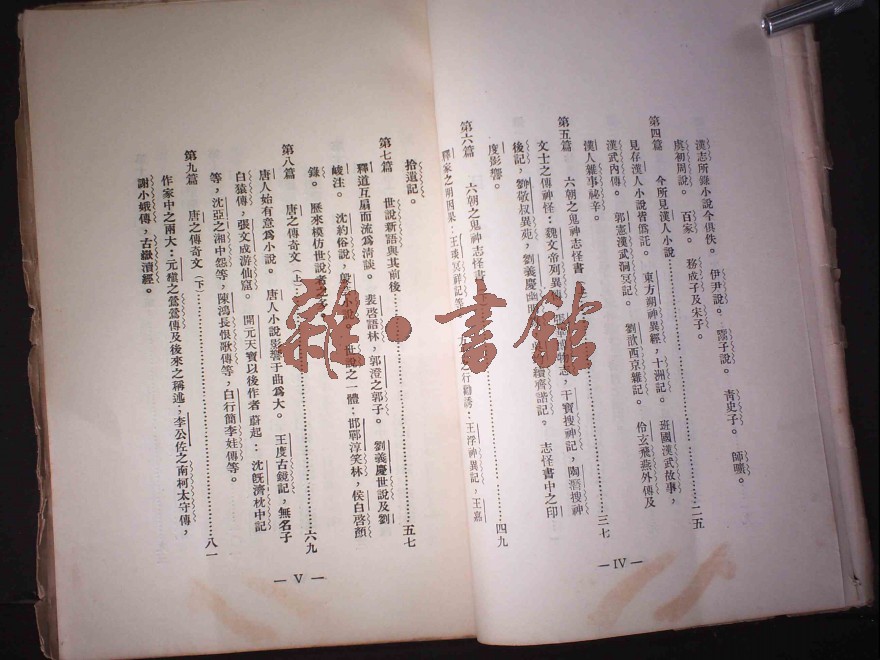 漢志所錄小說今俱佚。 伊尹說。 鬻子說。 靑史子。 師曠。
虞初周說。 百家。 務成子及宋子。
第四篇 今所見漢人小說……二五
見存漢人小說皆僞託。 東方朔神異經,十洲記。 班固漢武故事,
漢武內傳。 郭憲漢武洞冥記。 劉歆西京雜記。 伶玄飛燕外傳及
漢人雜事祕辛。
第五篇 六朝之鬼神志怪書……三七
文士之傳神怪:魏文帝列異傳,博物志,干寶搜神記,陶潛搜神
後記,劉敬叔異苑,劉義慶幽明,續齊諧記。 志怪書中之印
度影響。
第六篇 六朝之鬼神志怪書……四九
釋家之明因果:王琰冥祥記等。之行勸誘:王浮神異記,王嘉
— IV —
拾遺記。
第七篇 世說新語與其前後……五七
釋道互扇而流爲淸談。 裴啓語林,郭澄之郭子。 劉義慶世說及劉
峻注。 沈約俗說,小說。 世說之一體:邯鄲淳笑林,侯白啓顏
錄。 歷來模仿世說者之
第八篇 唐之傳奇文(上)……六九
唐人始有意爲小說。 唐人小說影響于曲爲大。 王度古鏡記,無名子
白猿傳,張文成游仙窟。 開元天寶以後作者蔚起:沈旣濟枕中記
等,沈亞之湘中怨等,陳鴻長恨歌傳等,白行簡李娃傳等。
第九篇 唐之傳奇文(下)……八一
作家中之兩大:元稹之鶯鶯傳及後來之稱述;李公佐之南柯太守傳,
謝小娥傳,古嶽瀆經。
— V —
雜·書館